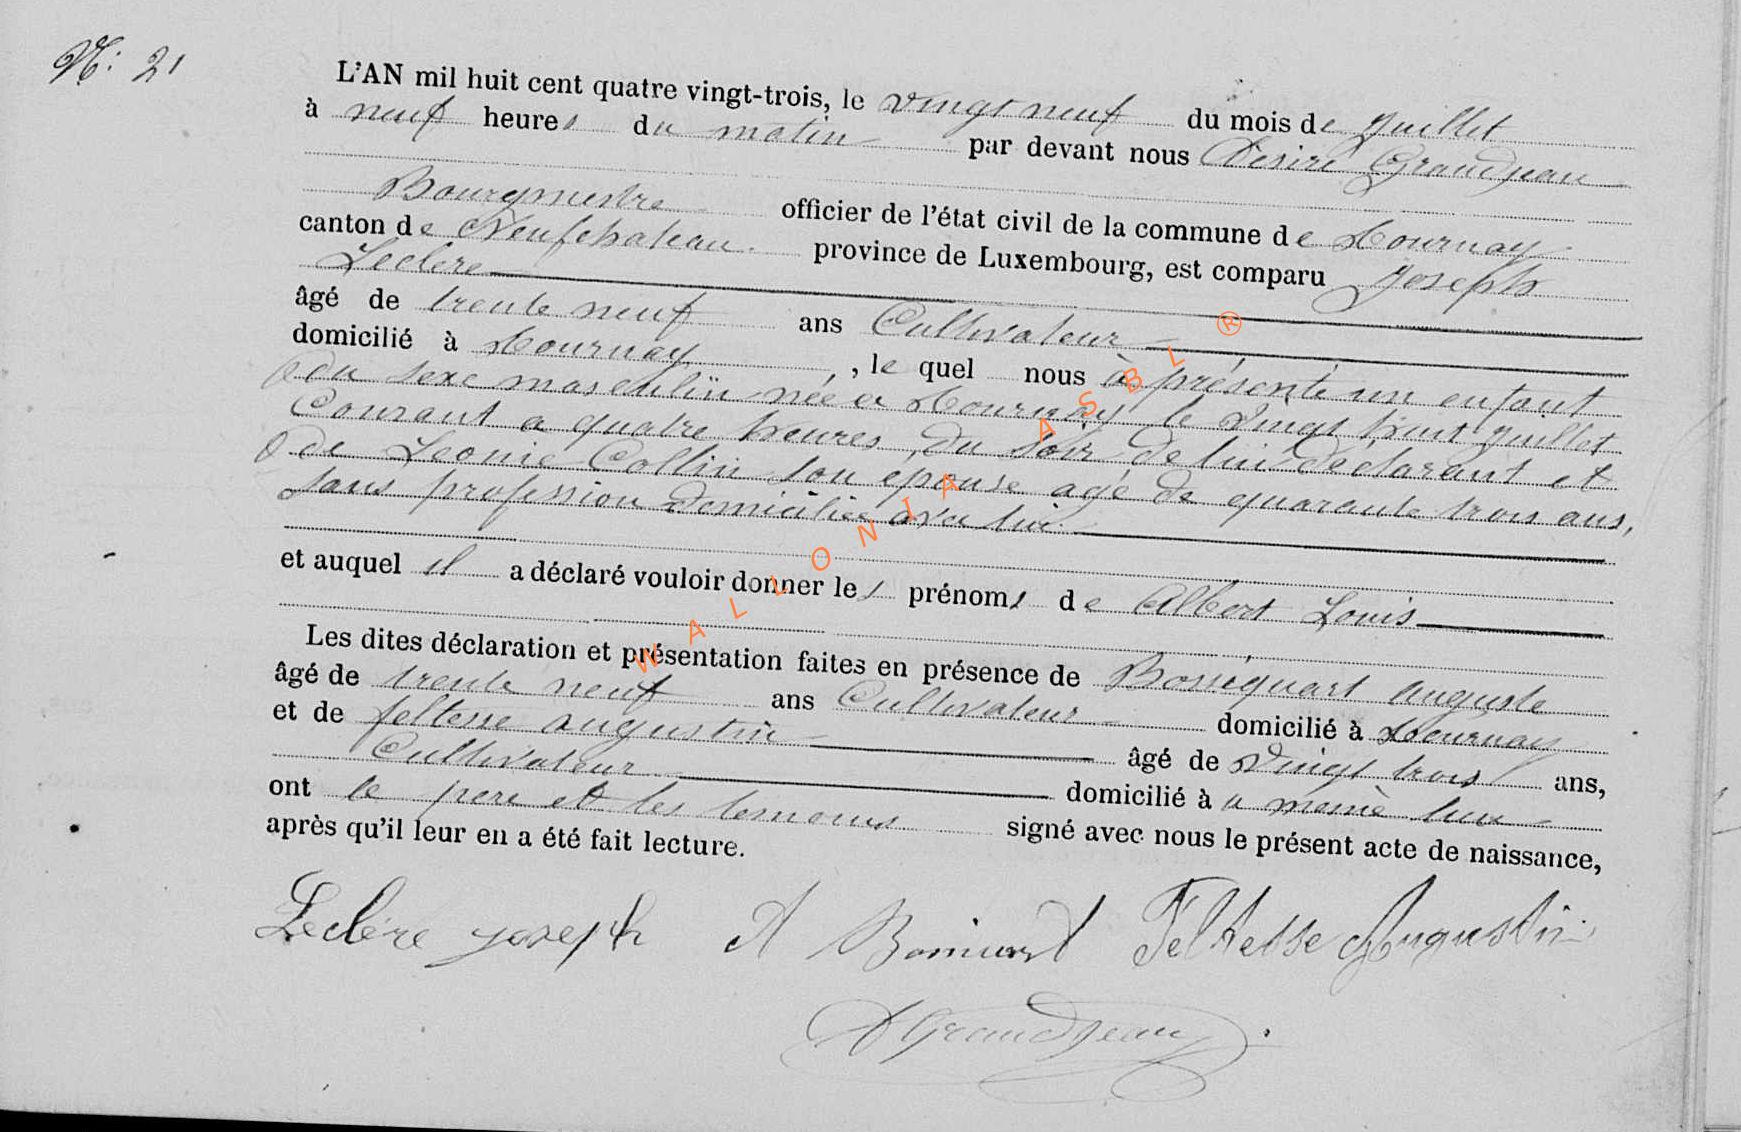 N: 21
L'AN mil huit cent quatre vingt-trois, le vingt neuf du mois de Juillet
à neuf heures du matin par devant nous Désiré Grandjean
Bourgmestre officier de l'état civil de la commune de Tournay
canton de Neufchateau province de Luxembourg, est comparu Joseph
Leclere
âgé de trente neuf ans Cultivateur
domicilié à Tournay, le quel nous à présenté un enfant
du sexe masculin née a Tournay le vingt huit Juillet
Courant a quatre heures du soir de lui déclarant et
de Leonie Collin son epouse agé de quarante trois ans,
sans profession domiciliée avec lui
et auquel il a déclaré vouloir donner les prénoms de Albert Louis
Les dites déclaration et présentation faites en présence de auguste
âgé de trente neuf ans Cultivateur domicilié à Tournay
et de feltesse augustin âgé de vingt trois ans,
Cultivateur domicilié à u meme lieu
ont le pere et les temoins signé avec nous le présent acte de naissance,
après qu'il leur en a été fait lecture.
Leclère joseph A Feltesse Augustin
D Grandjean
WALLONIA ASBL ®